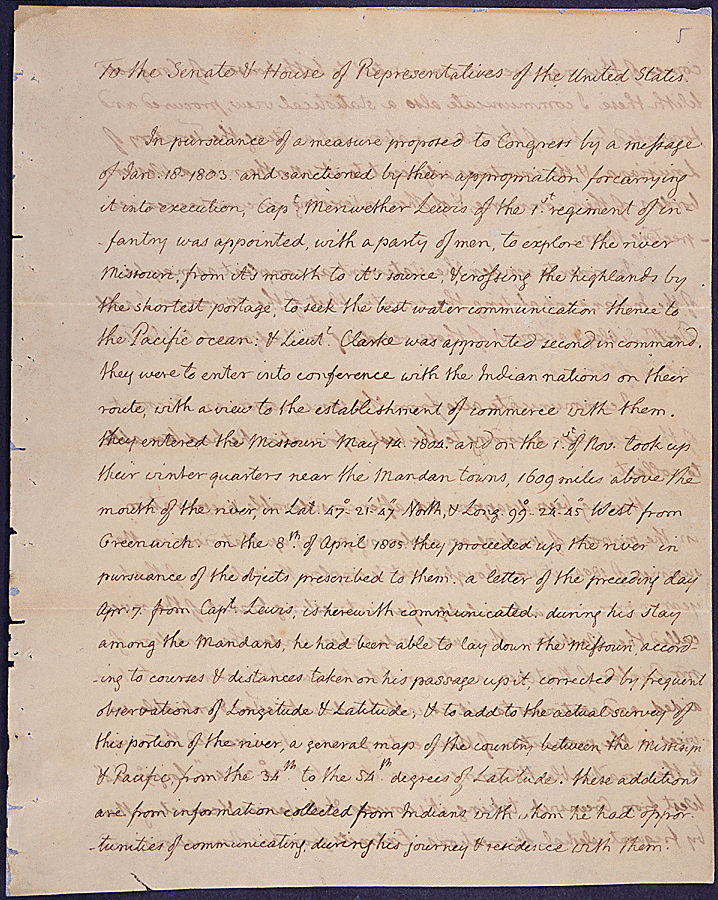 5
To the Senate & House of Representatives of the United States.
In pursuance of a measure proposed to Congress by a message
of Jan. 18. 1803. and sanctioned by their appropriation for carrying
it into execution, Capt. Meriwether Lewis of the 1st. regiment of in-
-fantry was appointed, with a party of men, to explore the river
Missouri, from it's mouth to it's source, & crossing the highlands by
the shortest portage, to seek the best water communication thence to
the Pacific ocean: & Lieut. Clarke was appointed second in command.
they were to enter into conference with the Indian nations on their
route, with a view to the establishment of commerce with them.
they entered the Missouri May 14. 1804. and on the 1st of Nov. took up
their winter quarters near the Mandan towns, 1609 miles above the
mouth of the river, in Lat. 47°-21'-47" North, & Long. 99°-24'-45" West from
Greenwich. on the 8th. of April 1805. they proceeded up the river in
pursuance of the objects prescribed to them. a letter of the preceding day
Apr. 7. from Capt. Lewis, is herewith communicated. during his stay
among the Mandans, he had been able to lay down the Missouri, accord-
-ing to courses & distances taken on his passage up it, corrected by frequent
observations of Longitude & Latitude; & to add to the actual survey of
this portion of the river, a general map of the country between the Missisipi
& Pacific, from the 34th to the 54th degrees of Latitude. these additions
are from information collected from Indians with whom he had oppor-
-tunities of communicating, during his journey & residence with them.